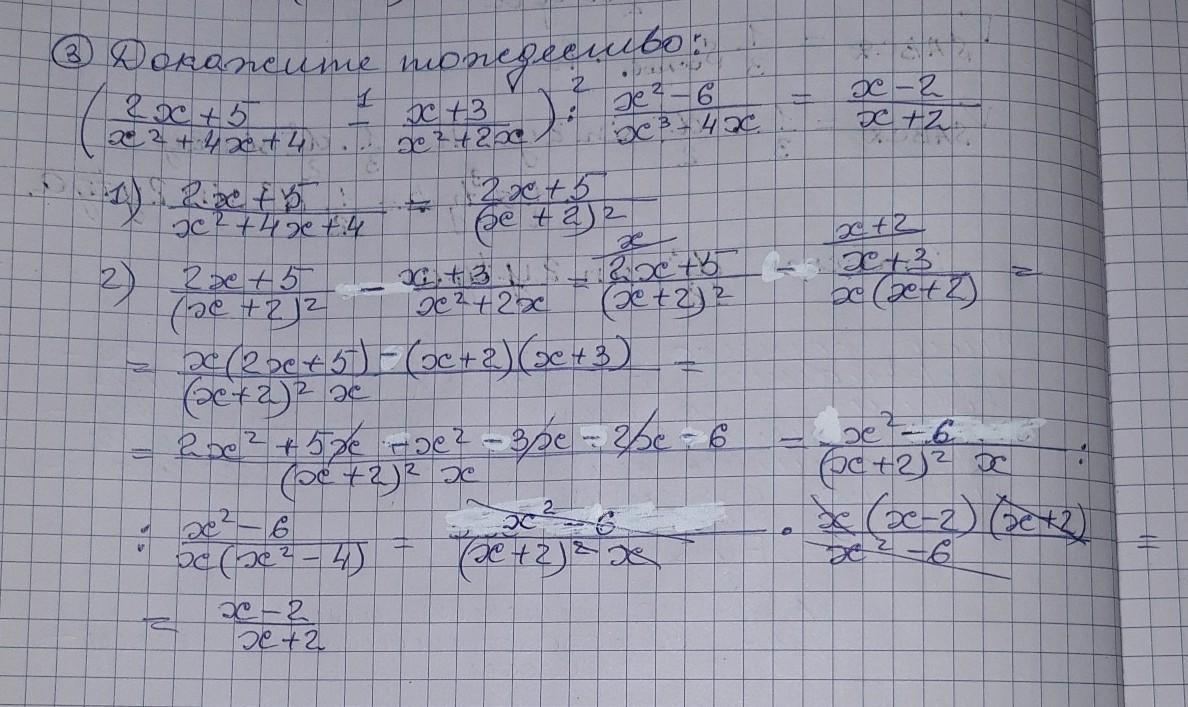 ③ Докажите тождество:
( (2x+5)/(x²+4x+4) -¹ (x+3)/(x²+2x) ) :² (x²-6)/(x³-4x) = (x-2)/(x+2)
1) (2x+5)/(x²+4x+4) = (2x+5)/(x+2)²
2) (2x+5)/(x+2)² - (x+3)/(x²+2x) = x/ (2x+5)/(x+2)² - x+2/ (x+3)/(x(x+2)) =
= (x(2x+5)-(x+2)(x+3))/((x+2)² x) =
= (2x²+5x-x²-3x-2x-6)/((x+2)² x) = (x²-6)/((x+2)² x) :
: (x²-6)/(x(x²-4)) = (x²-6)/((x+2)² x) · (x(x-2)(x+2))/(x²-6) =
= (x-2)/(x+2)